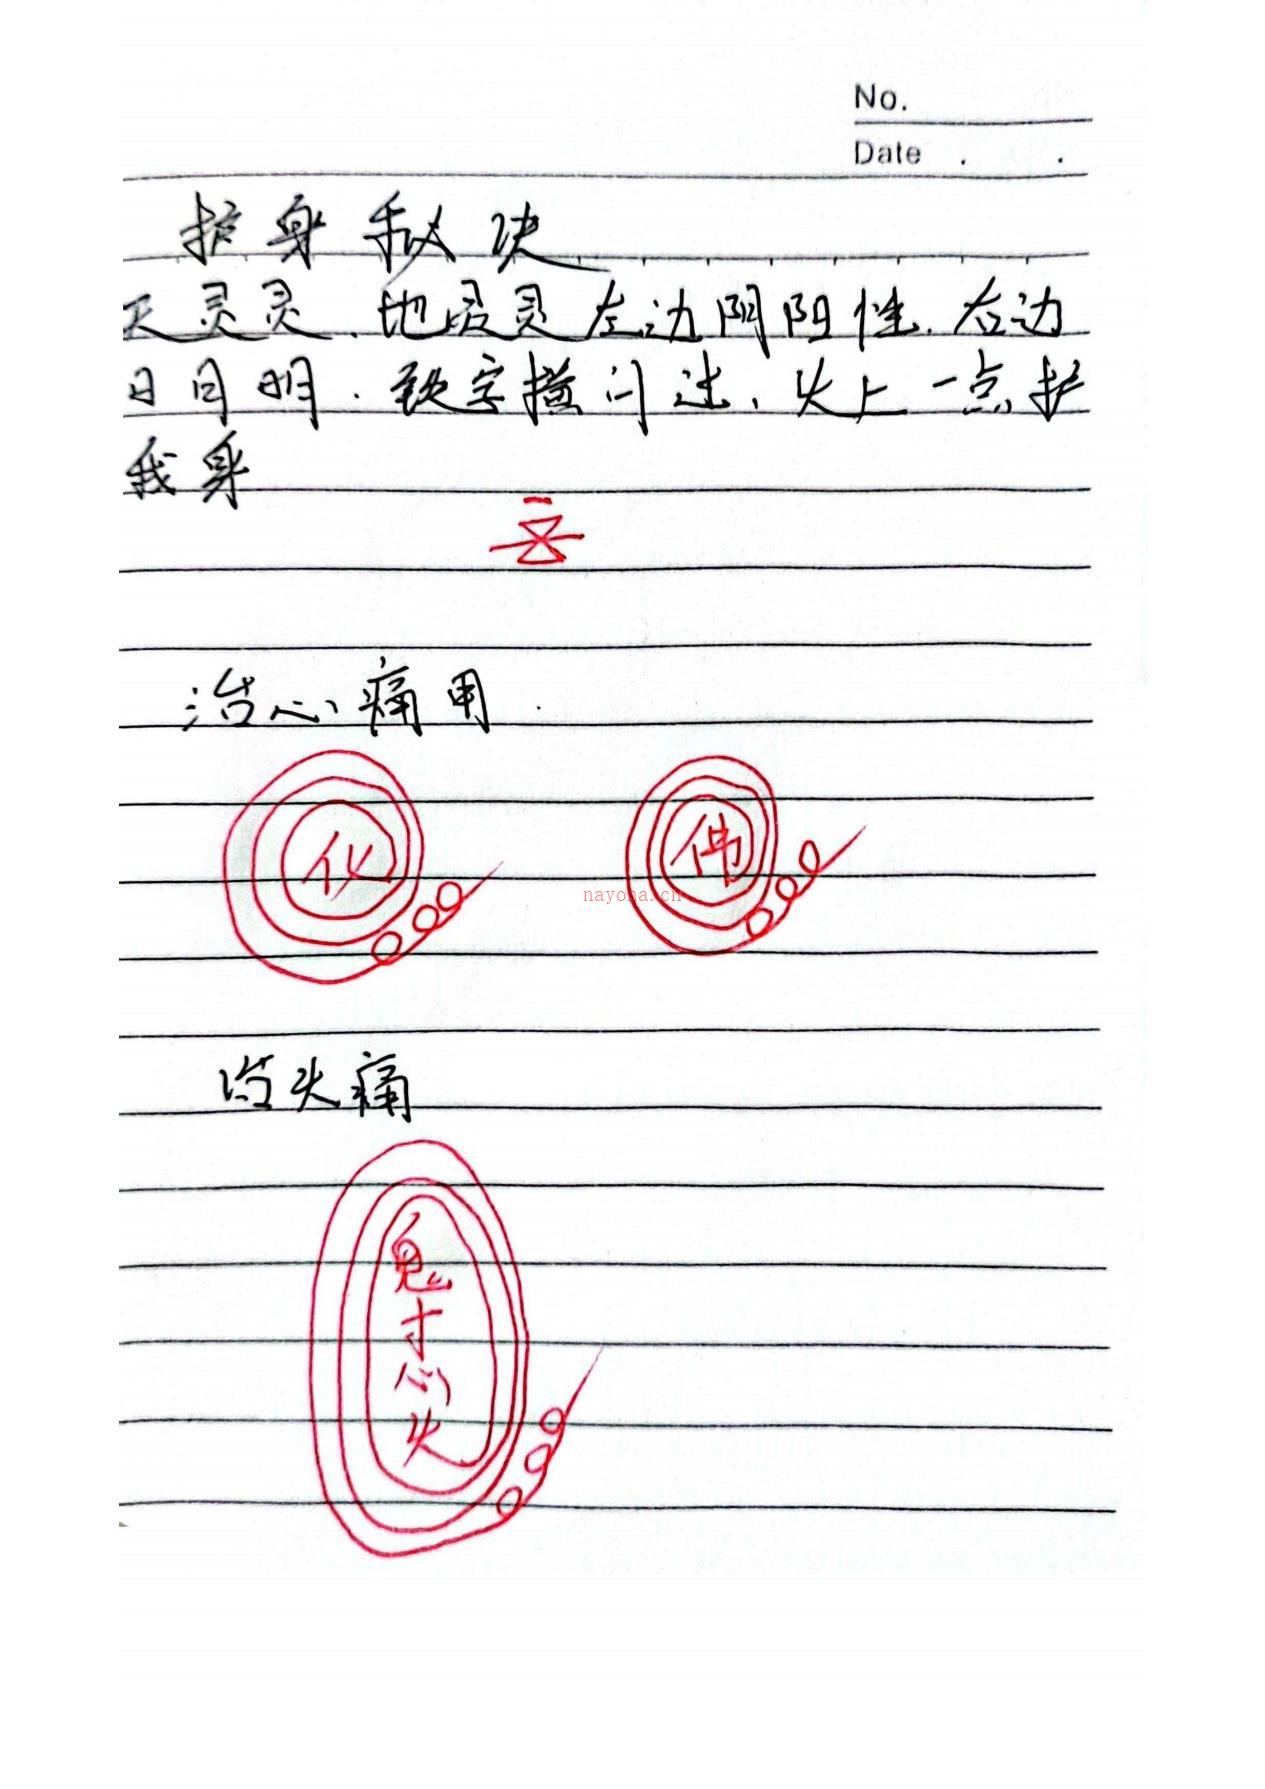 No.
Date . .
护身秘决
天灵灵.地灵灵左边阴阳性.右边
日月明.铁字横门过、头上一点护
我身
治心痛用.
化
佛
nayona.cn
治头痛
鬼
寸
心
火